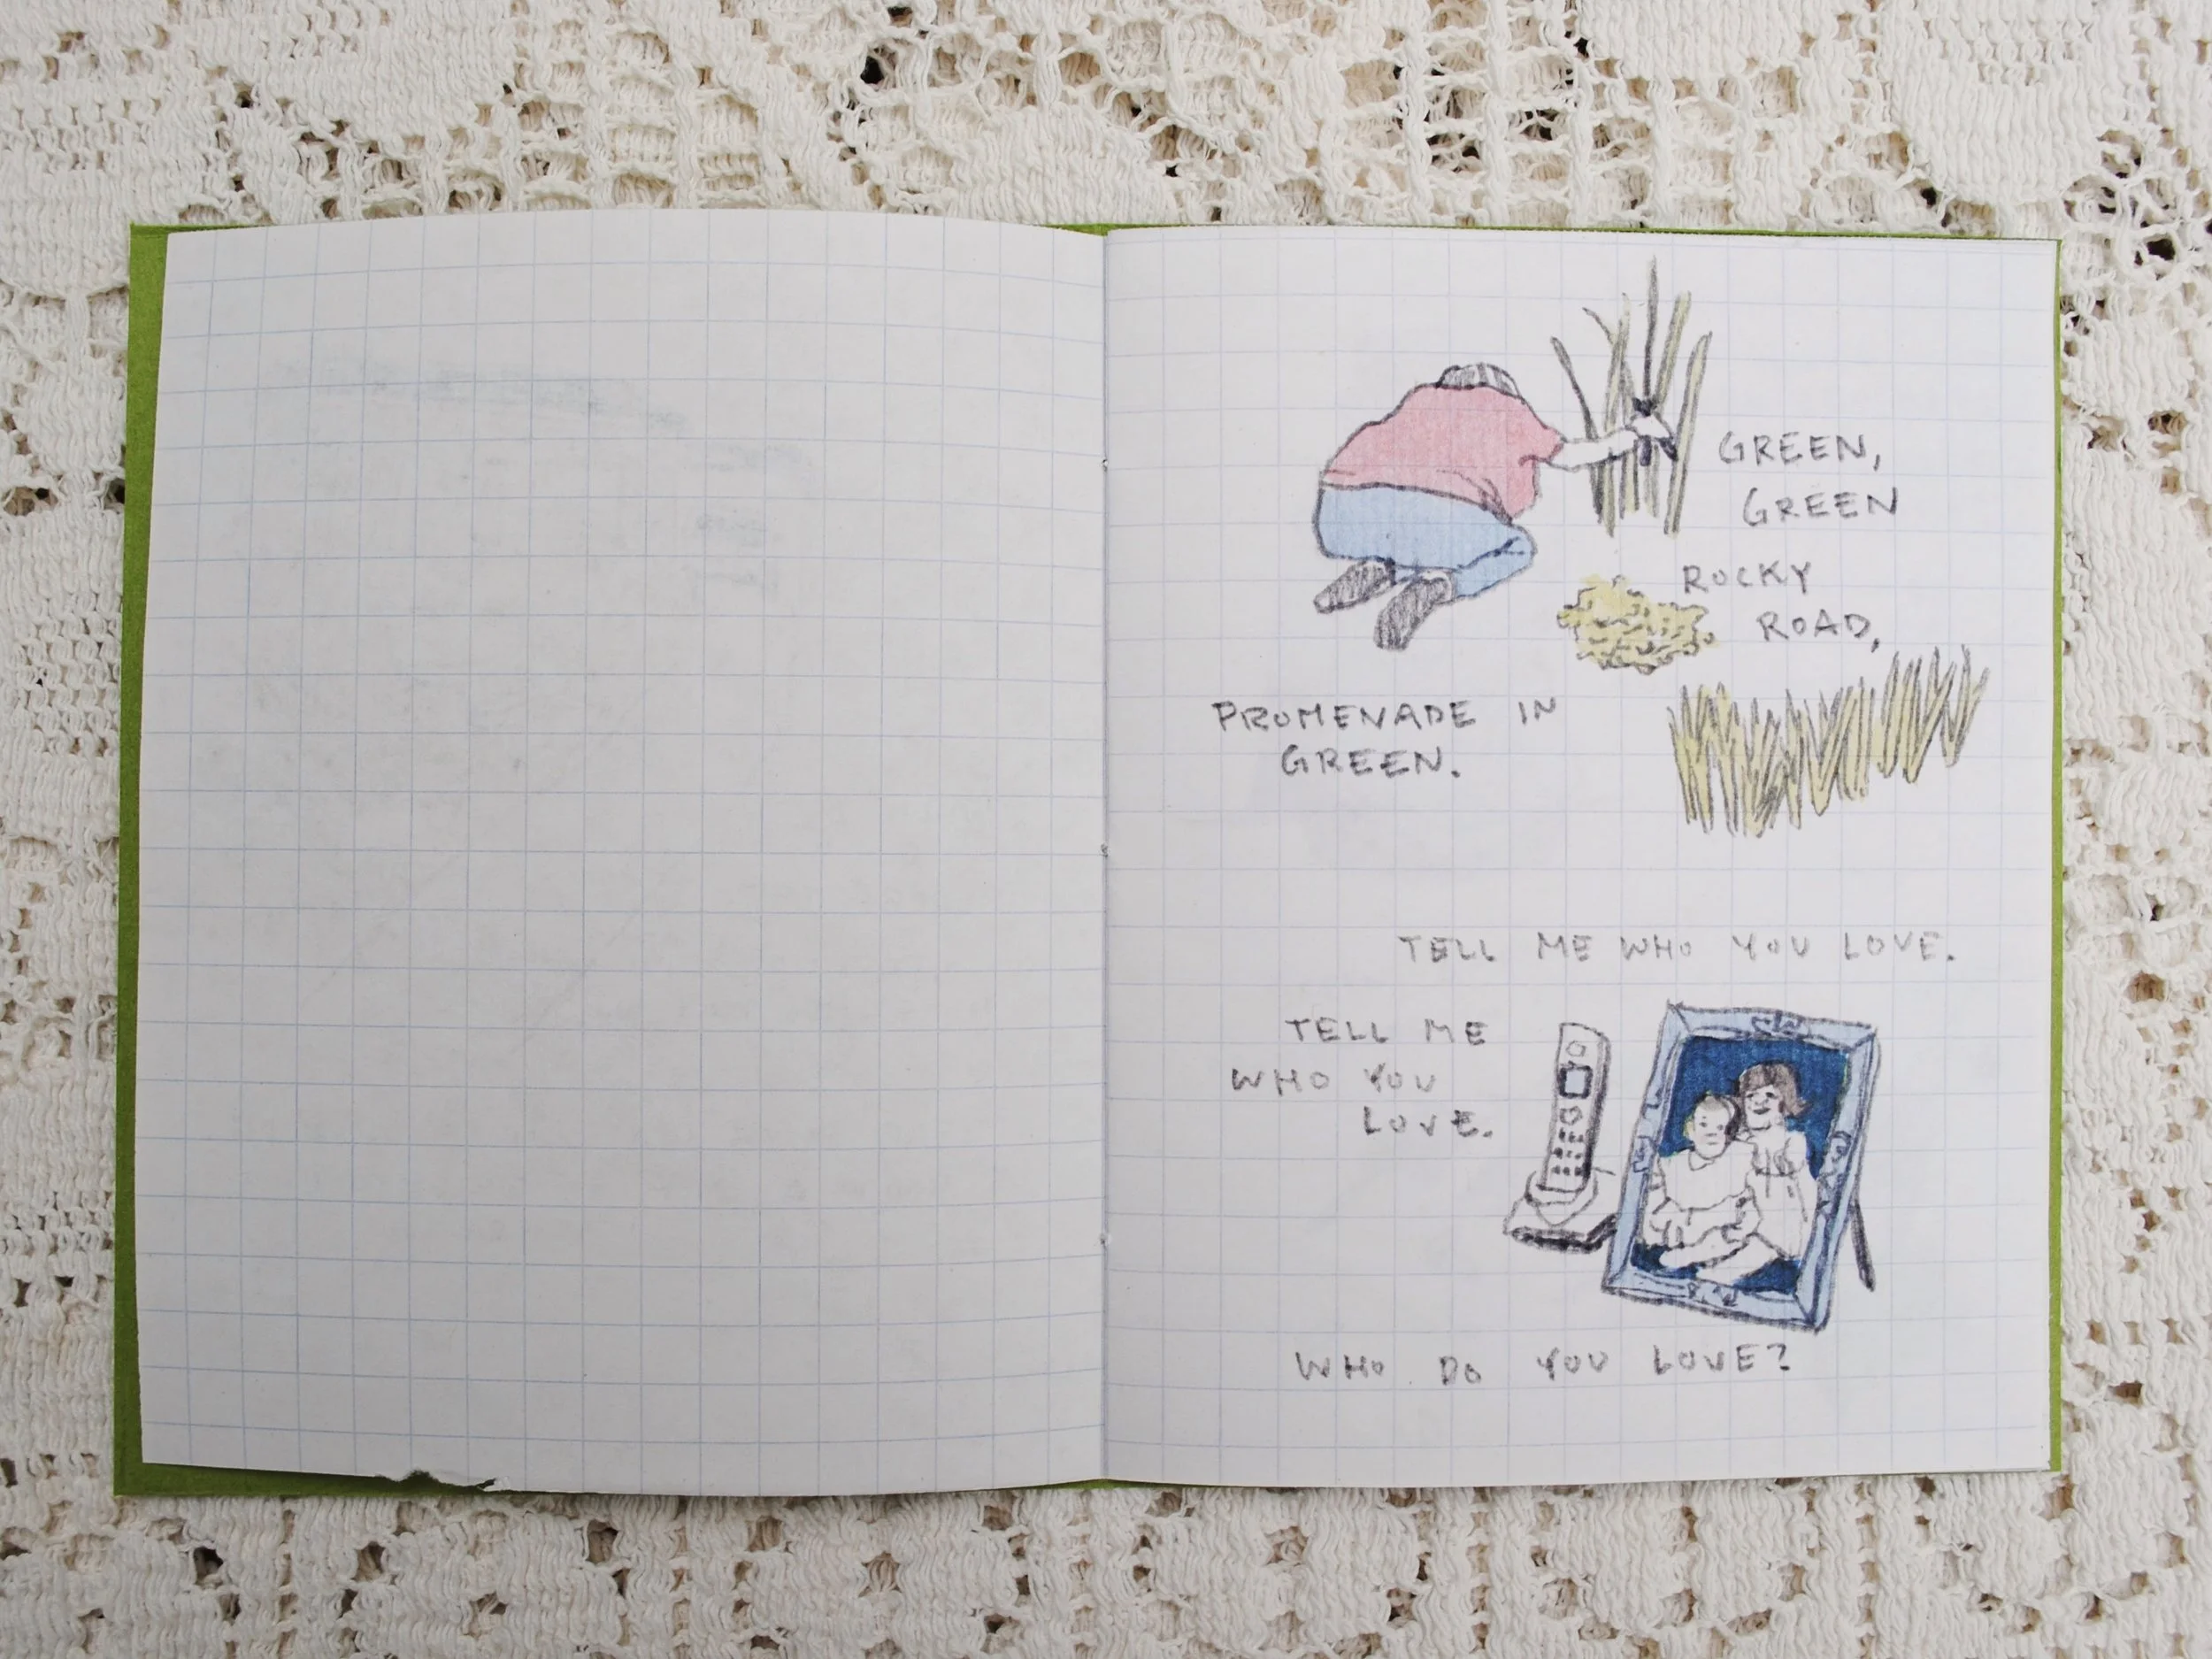 GREEN,
GREEN
ROCKY
ROAD,
PROMENADE IN
GREEN.
TELL ME WHO YOU LOVE.
TELL ME
WHO YOU
LOVE.
WHO DO YOU LOVE?